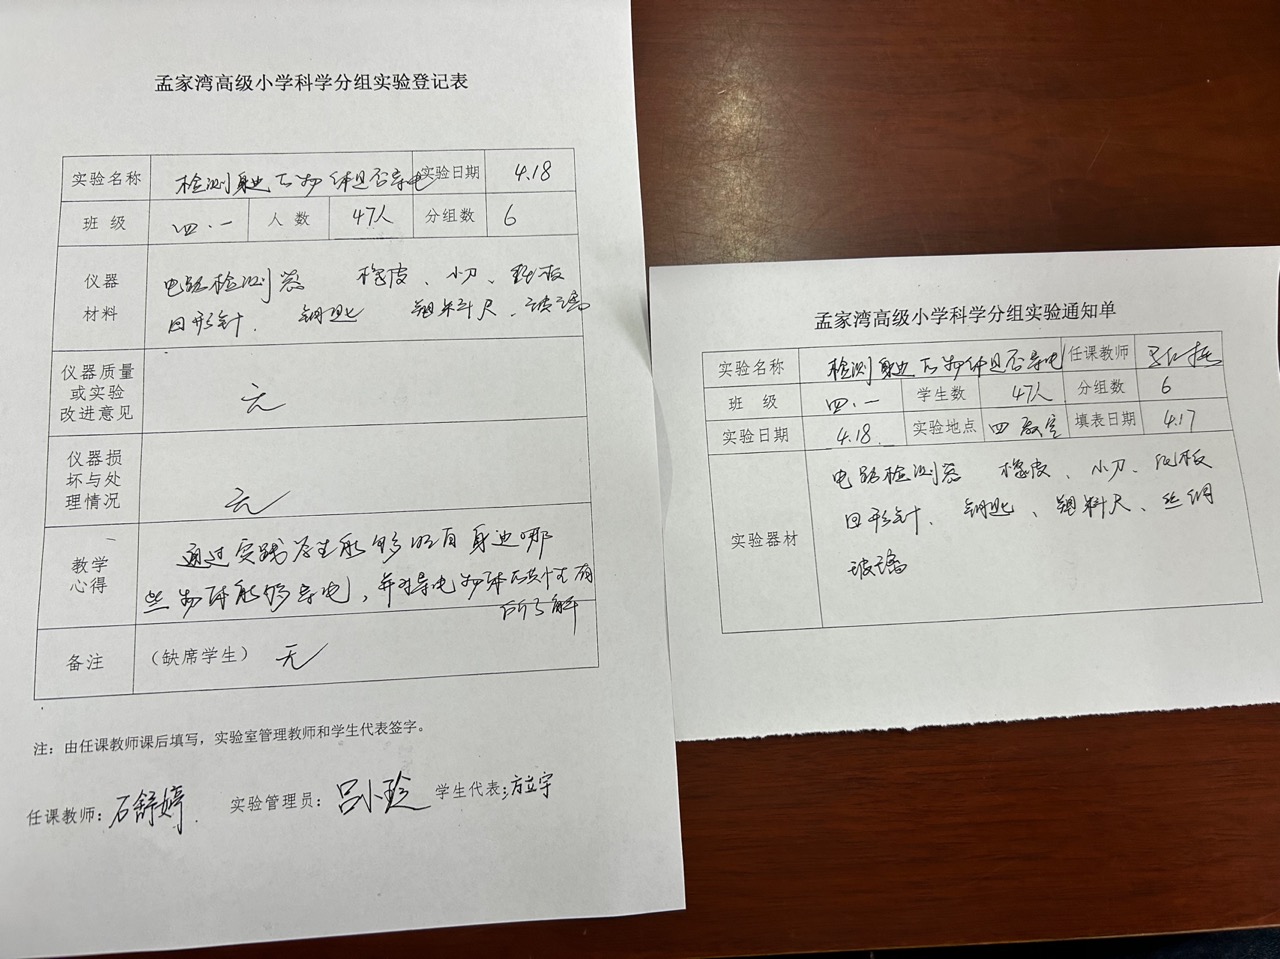 孟家湾高级小学科学分组实验登记表
实验名称 检测身边的物体是否导电 实验日期 4.18
班 级 四.一 人 数 47人 分组数 6
仪器 电路检测器 橡皮、小刀、纸板
材料 回形针. 钥匙 塑料尺.玻璃
仪器质量
或实验 无
改进意见
仪器损
坏与处
理情况 无
教学 通过实践学生能够明白身边哪
心得 些物体能够导电,并对导电物体的共性有
所了解
备注 (缺席学生) 无
注:由任课教师课后填写,实验室管理教师和学生代表签字。
任课教师:石舒婷. 实验管理员:吕小玲 学生代表:方立宇
孟家湾高级小学科学分组实验通知单
实验名称 检测身边的物体是否导电 任课教师
班 级 四.一 学生数 47人 分组数 6
实验日期 4.18. 实验地点 四教室 填表日期 4.17
电路检测器 橡皮、小刀、纸板
回形针、钥匙、塑料尺、丝绸
实验器材
玻璃